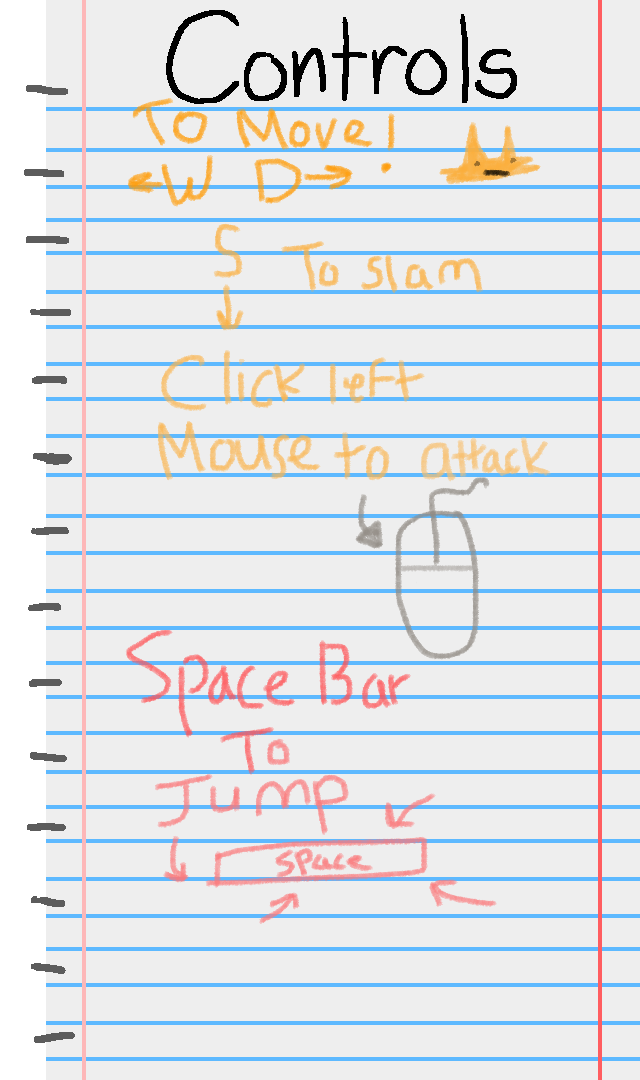 Controls
To Move!
←W D→
S To slam
↓
Click left
Mouse to attack
Space Bar
To
Jump
space